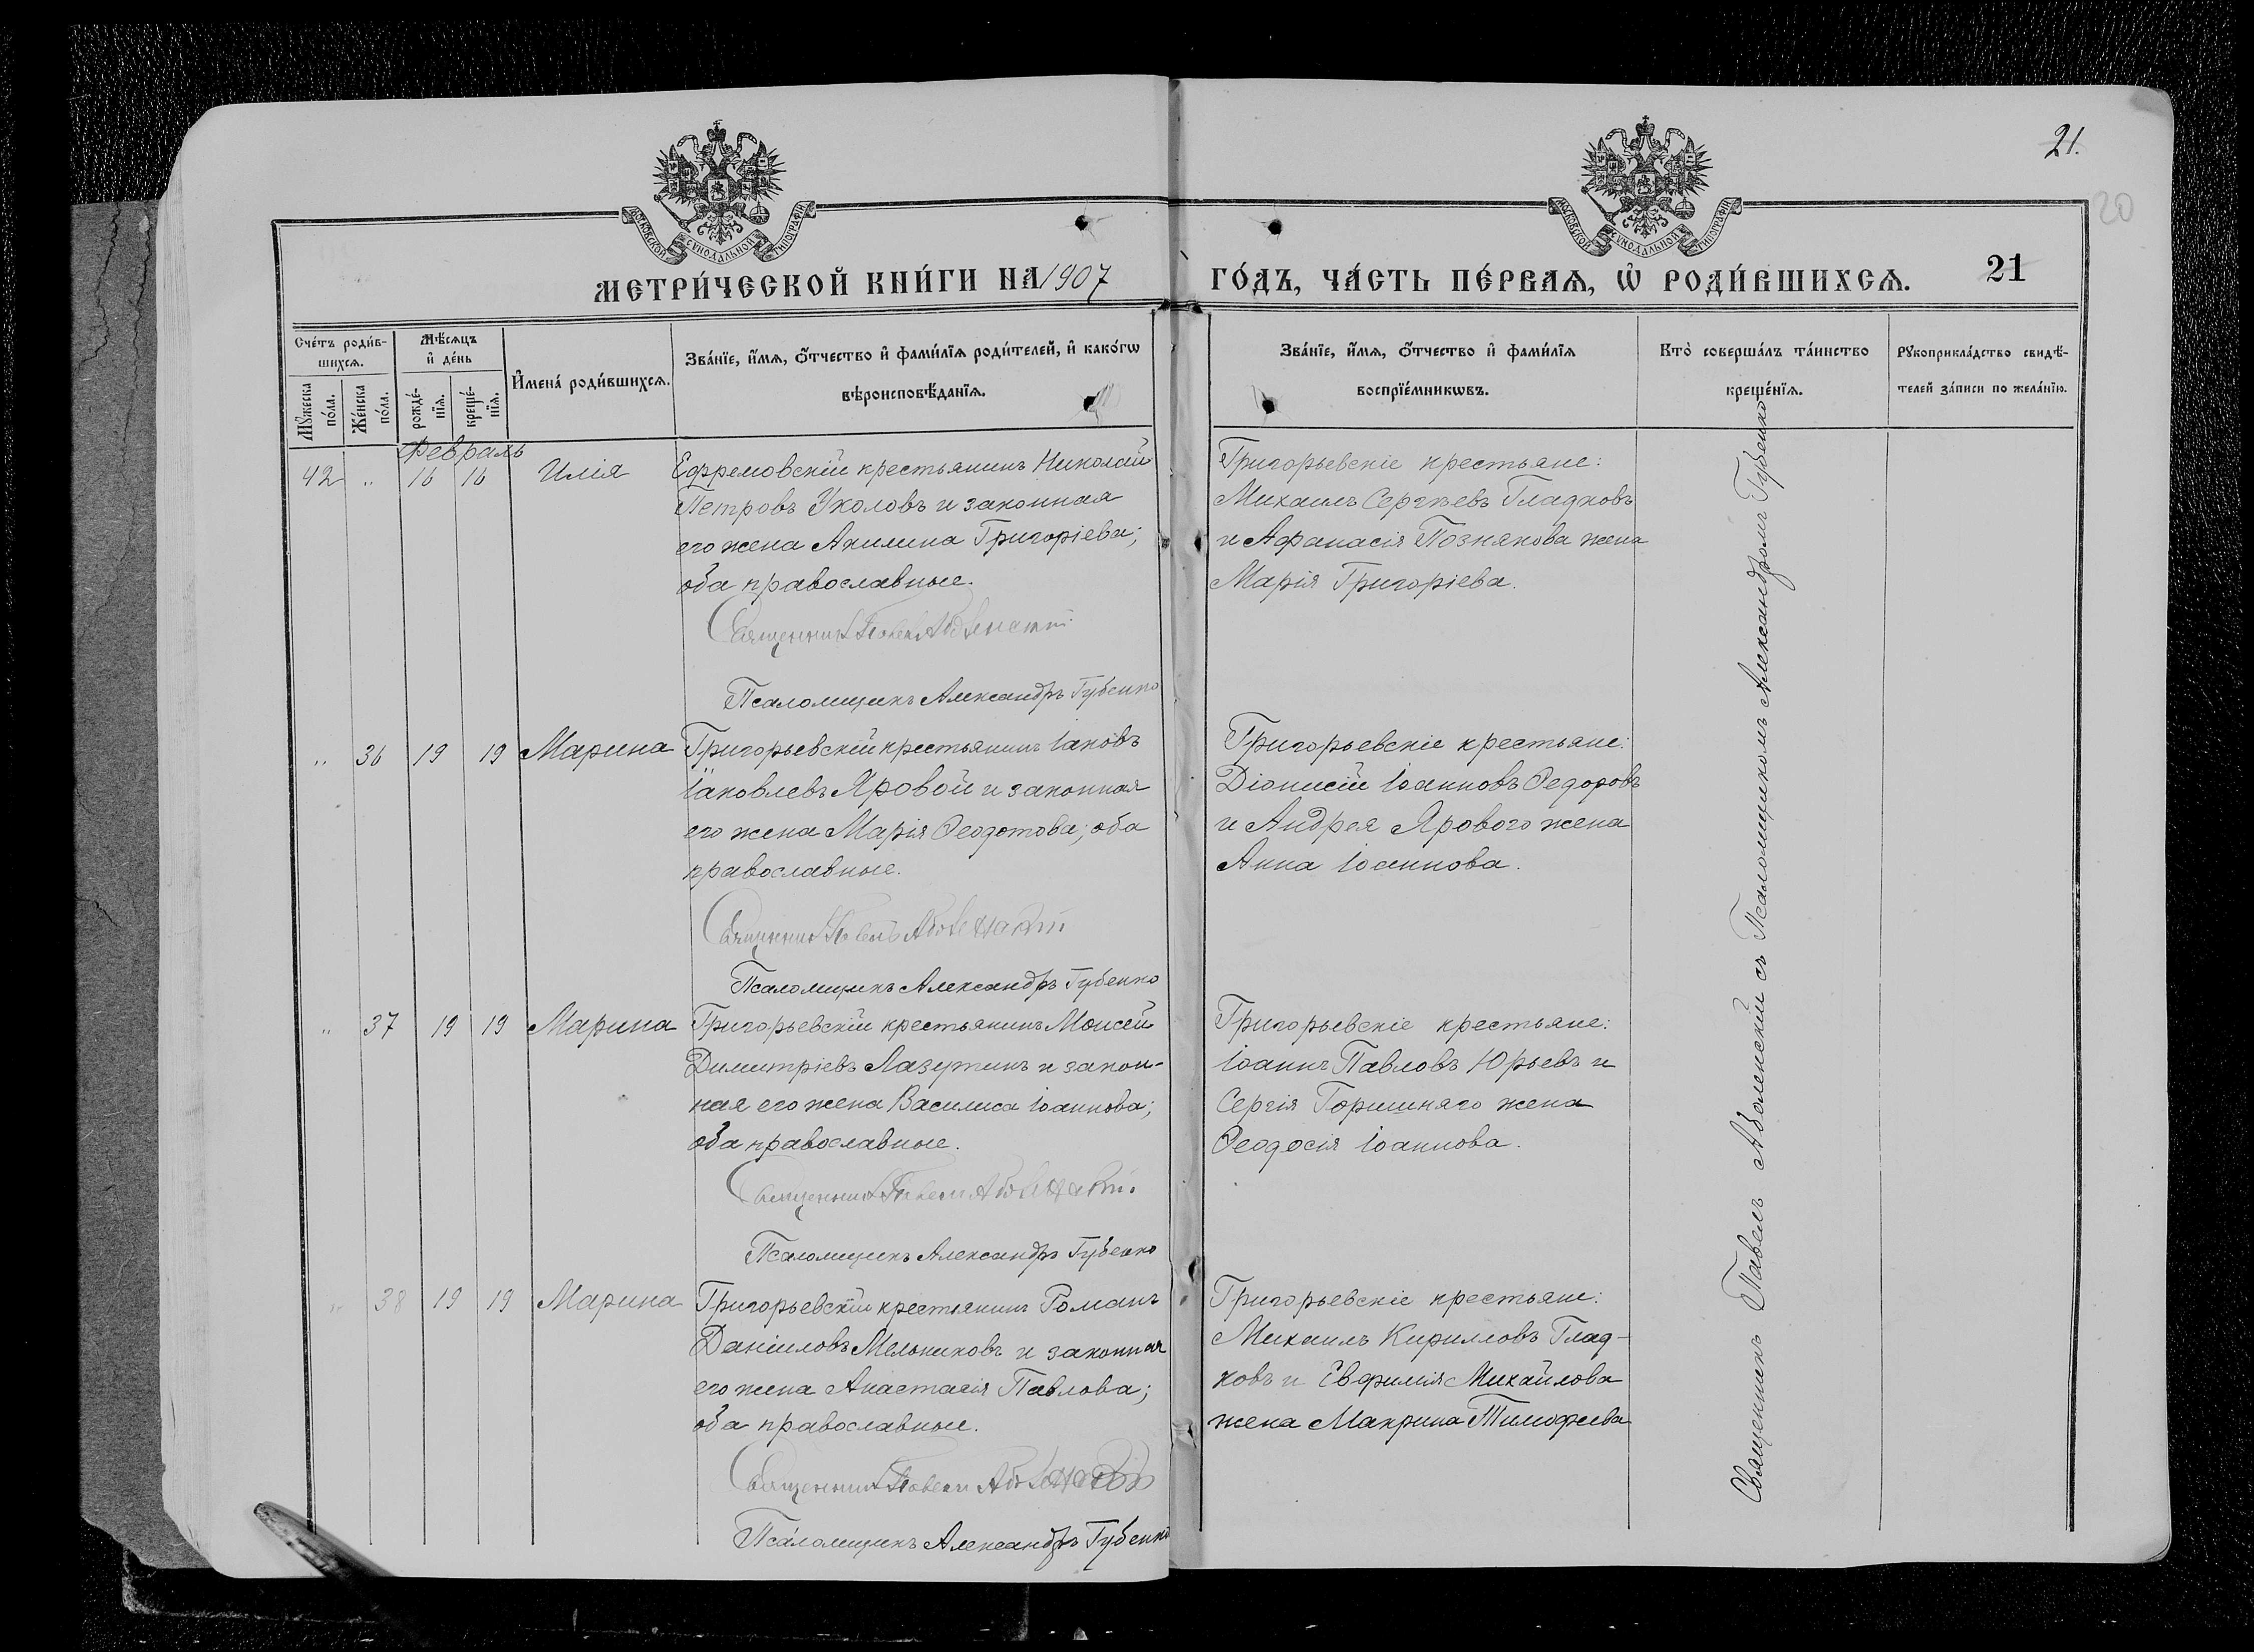 21.
20
МОСКОВСКОЙ СѴНОДАЛЬНОЙ ТИПОГРАФІИ
МОСКОВСКОЙ СѴНОДАЛЬНОЙ ТИПОГРАФІИ
МЕТРИ́ЧЕСКОЙ КНИ́ГИ НА 1907
ГО́ДЪ, ЧА́СТЬ ПЕ́РВАѦ, Ѽ РОДИ́ВШИХСѦ.
21
Сче́тъ роди́в-
шихсѧ.
Мꙋ́жеска
по́ла.
Же́нска
по́ла.
Мѣ́сѧцъ
и҆ де́нь
рожде́-
нїѧ.
креще́-
нїѧ.
И҆мена̀ роди́вшихсѧ.
Зва́нїе, и҆́мѧ, ѻ҆́тчество и҆ фами́лїѧ роди́телей, и҆ како́гѡ
вѣроисповѣ́данїѧ.
Зва́нїе, и҆́мѧ, ѻ҆́тчество и҆ фами́лїѧ
воспрїе́мникѡвъ.
Кто̀ соверша́лъ та́инство
креще́нїѧ.
Рꙋкоприкла́дство свидѣ́-
телей за́писи по жела́нїю.
Февраль
42 „ 16 16 Илія
Ефремовскій крестьянинъ Николай
Петровъ Уколовъ и законная
его жена Акилина Григоріева;
оба православные.
Священникъ Павелъ Аболенскій
Псаломщикъ Александръ Губенко
Григорьевскіе крестьяне:
Михаилъ Сергѣевъ Гладковъ
и Афанасія Познякова жена
Марія Григоріева.
„ 36 19 19 Марина
Григорьевскій крестьянинъ Іаковъ
Іаковлевъ Яровой и законная
его жена Марія Ѳеодотова; оба
православные.
Священникъ Павелъ Аболенскій
Псаломщикъ Александръ Губенко
Григорьевскіе крестьяне:
Діонисій Іоанновъ Ѳедоровъ
и Андрея Ярового жена
Анна Іоаннова.
„ 37 19 19 Марина
Григорьевскій крестьянинъ Моисей
Димитріевъ Лазуткинъ и закон-
ная его жена Василиса Іоаннова;
оба православные.
Священникъ Павелъ Аболенскій
Псаломщикъ Александръ Губенко
Григорьевскіе крестьяне:
Іоаннъ Павловъ Юрьевъ и
Сергія Горишняго жена
Ѳеодосія Іоаннова.
„ 38 19 19 Марина
Григорьевскій крестьянинъ Романъ
Даніиловъ Мельниковъ и законная
его жена Анастасія Павлова;
оба православные.
Священникъ Павелъ Аболенскій
Псаломщикъ Александръ Губенко
Григорьевскіе крестьяне:
Михаилъ Кирилловъ Глад-
ковъ и Евфимія Михайлова
жена Макрина Тимофеева
Священникъ Павелъ Аболенскій съ Псаломщикомъ Александромъ Губенко